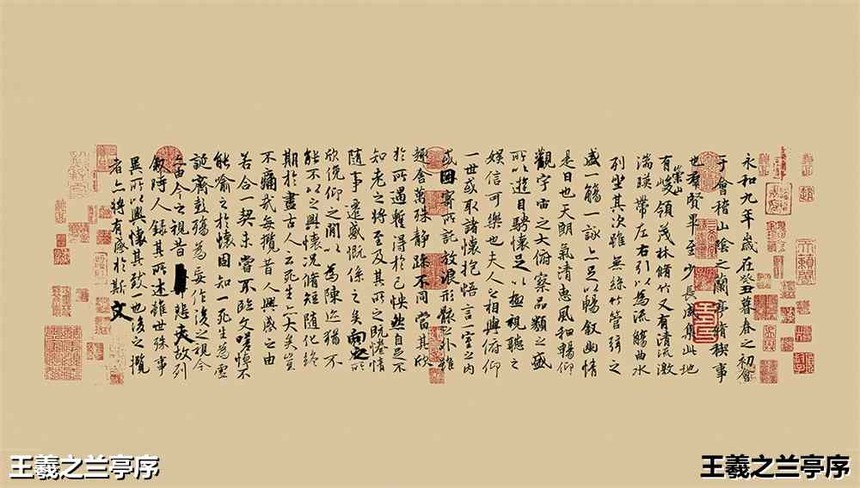 永和九年歲在癸丑暮春之初會
于會稽山陰之蘭亭脩禊事
也羣賢畢至少長咸集此地
有崇山峻領茂林脩竹又有清流激
湍暎帶左右引以為流觴曲水
列坐其次雖無絲竹管弦之
盛一觴一詠亦足以暢叙幽情
是日也天朗氣清惠風和暢仰
觀宇宙之大俯察品類之盛
所以遊目騁懷足以極視聽之
娛信可樂也夫人之相與俯仰
一世或取諸懷抱悟言一室之內
或因寄所託放浪形骸之外雖
趣舍萬殊靜躁不同當其欣
於所遇暫得於己怏然自足不
知老之將至及其所之既惓情
隨事遷感慨係之矣向之所
欣俛仰之閒以為陳迹猶不
能不以之興懷況脩短隨化終
期於盡古人云死生亦大矣豈
不痛哉每攬昔人興感之由
若合一契未嘗不臨文嗟悼不
能喻之於懷固知一死生為虛
誕齊彭殤為妄作後之視今
亦由今之視昔悲夫故列
敘時人錄其所述雖世殊事
異所以興懷其致一也後之攬
者亦將有感於斯文
王羲之兰亭序
王羲之兰亭序